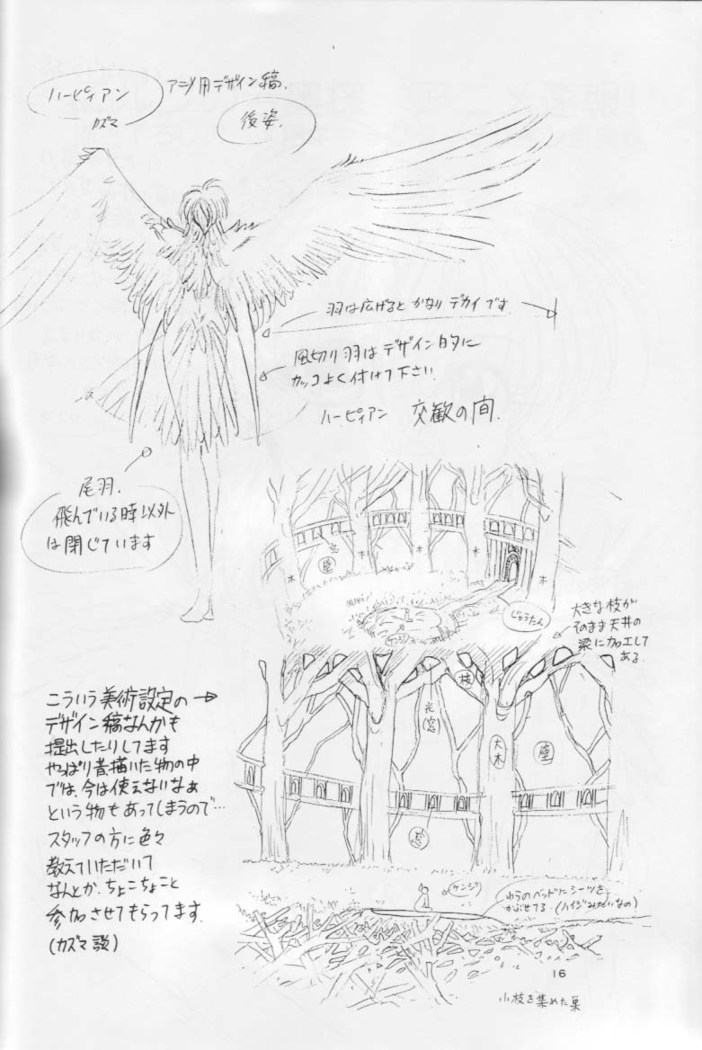 ハーピィアン
カズマ
アニメ用デザイン稿.
後姿.
羽は広げると かなり デカイです
風切り羽はデザイン的に
カッコよく付けて下さい.
ハーピィアン 交歓の間.
尾羽.
飛んでいる時以外
は閉じています
木
木
木
木
壁
じゅうたん
ケンジ
大きな枝が
そのまま天井の
梁に加工して
ある.
枝
大木
壁
こういう美術設定の→
デザイン稿なんかも
提出したりしてます
やっぱり昔描いた物の中
では、今は使えないなぁ
という物もあってしまうので…
スタッフの方に色々
教えていただいて
なんとか、ちょこちょこと
参加させてもらってます.
(カズマ 談)
ケンジ
わらのベッドにシーツを
かぶせてる.(ハイジみたいなの)
16
小枝を集めた巣